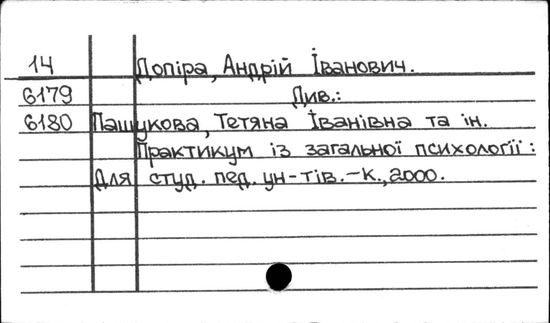 14 Допіра, Андрій Іванович.
6179 Див.:
6180 Пашукова, Тетяна Іванівна та ін.
Практикум із загальної психології :
Для студ. пед. ун-тів.-К., 2000.